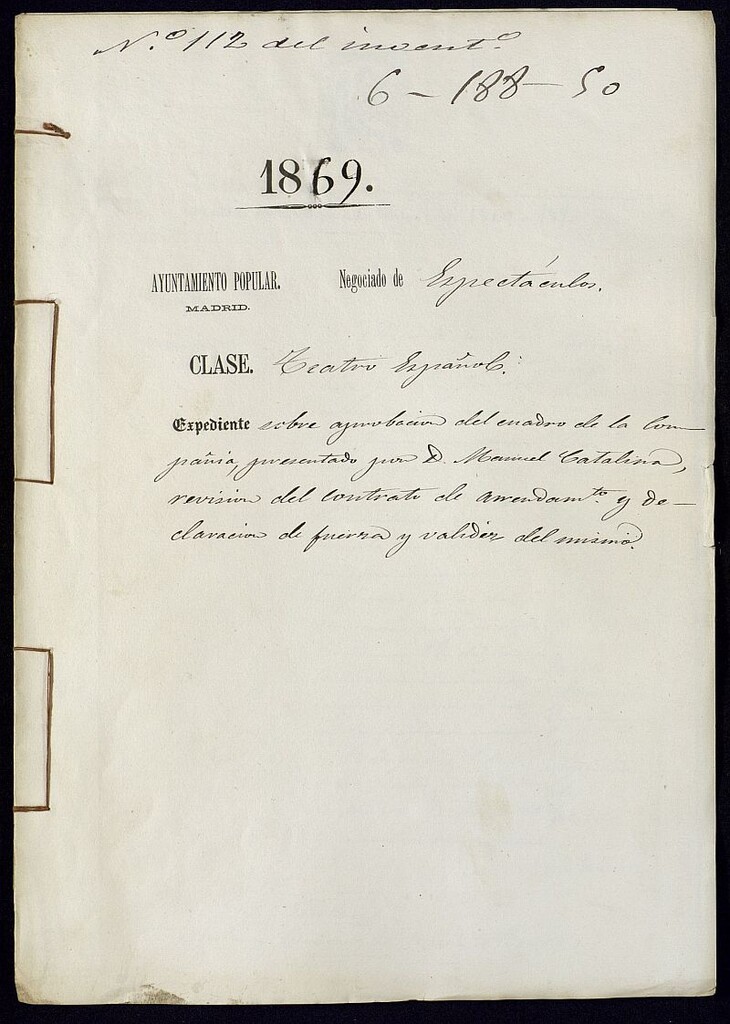 N.º 112 del invent.º
6-188-50
1869.
AYUNTAMIENTO POPULAR. Negociado de Espectáculos.
MADRID.
CLASE. Teatro Español.
Expediente sobre aprobacion del cuadro de la Com-
pañia, presentado por D. Manuel Catalina,
revision del contrato de arrendam.to y de-
claracion de fuerza y validéz del mismo.